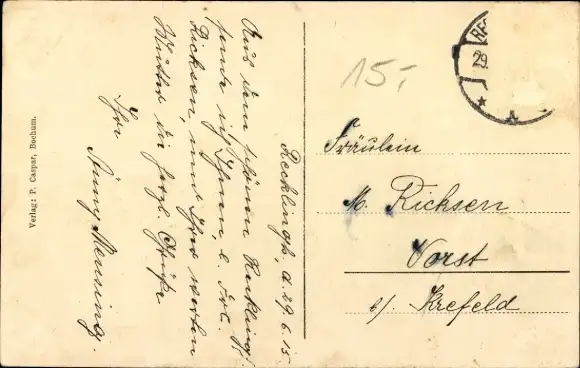 Recklingh., d. 29.6.15.
Aus dem schönen Recklingh.
sende ich Ihnen, l. Frl.
Ricksen, und Ihrer werten
Mutter die herzl. Grüße
Ihre
Änny Mensing.
Verlag: P. Caspar, Bochum.
15,-
29
Fräulein
M. Ricksen
Vorst
b/ Krefeld